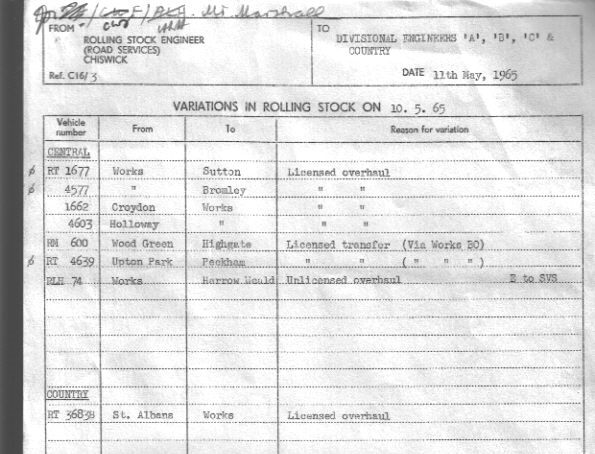 Mr Marshall
FROM
TO
ROLLING STOCK ENGINEER
(ROAD SERVICES)
CHISWICK
DIVISIONAL ENGINEERS 'A', 'B', 'C' &
COUNTRY
Ref. C16/ 3
DATE 11th May, 1965
VARIATIONS IN ROLLING STOCK ON 10. 5. 65
Vehicle number From To Reason for variation
CENTRAL
ø RT 1677 Works Sutton Licensed overhaul
ø 4577 " Bromley " "
1662 Croydon Works " "
4603 Holloway " " "
RM 600 Wood Green Highgate Licensed transfer (Via Works BO)
ø RT 4639 Upton Park Peckham " " ( " " " )
RLH 74 Works Harrow Weald Unlicensed overhaul E to SVS
COUNTRY
RT 3683B St. Albans Works Licensed overhaul